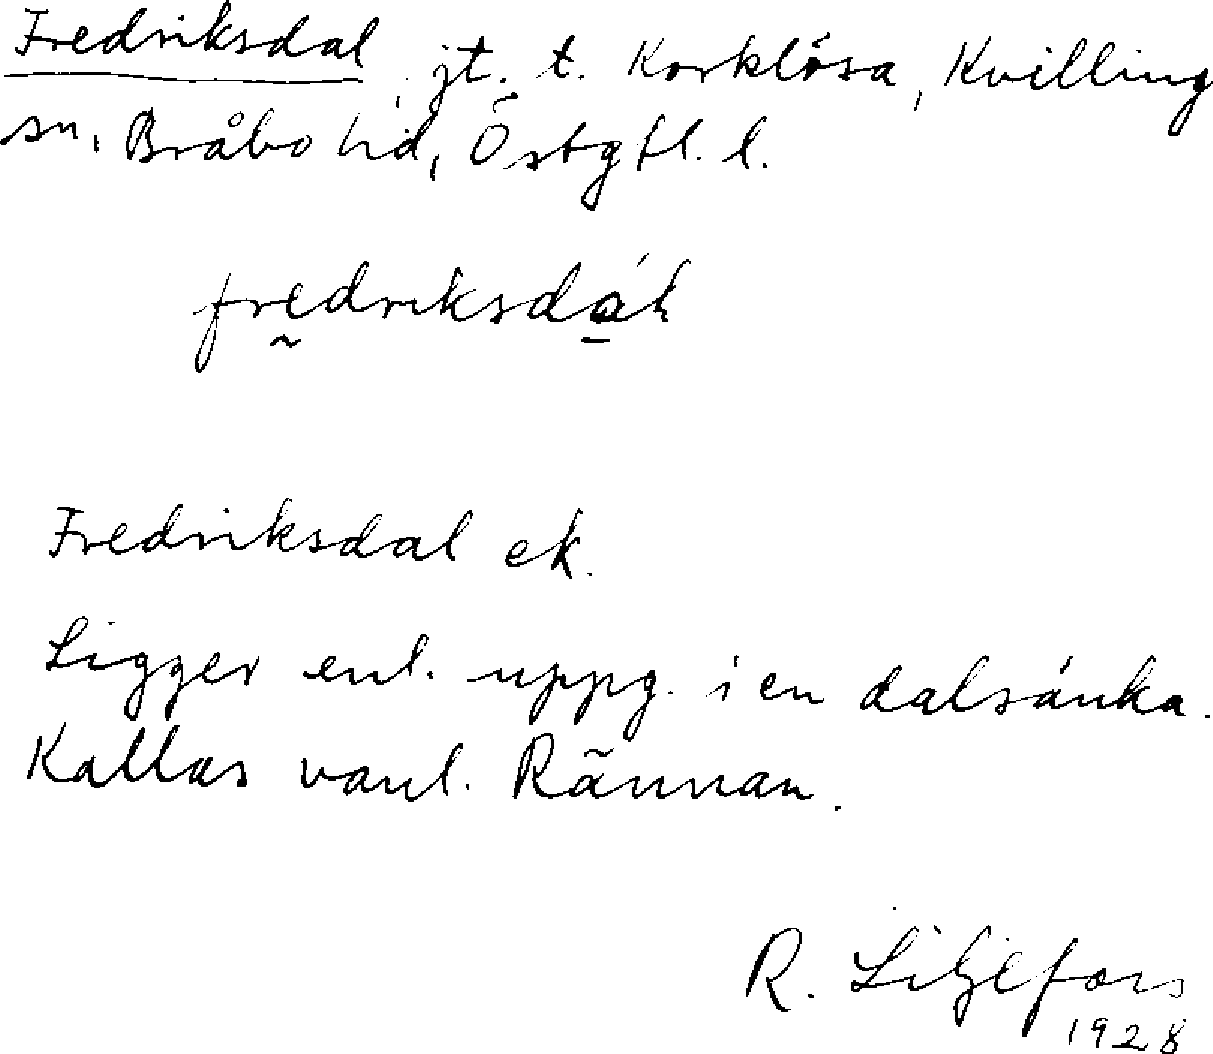 Fredriksdal, jt. t. Korklösa, Kvilling
sn, Bråbo hd, Östgtl. l.
fredriksdáł
Fredriksdal ek.
Ligger enl. uppg. i en dalsänka.
Kallas vanl. Rännan.
R. Liljefors
1928